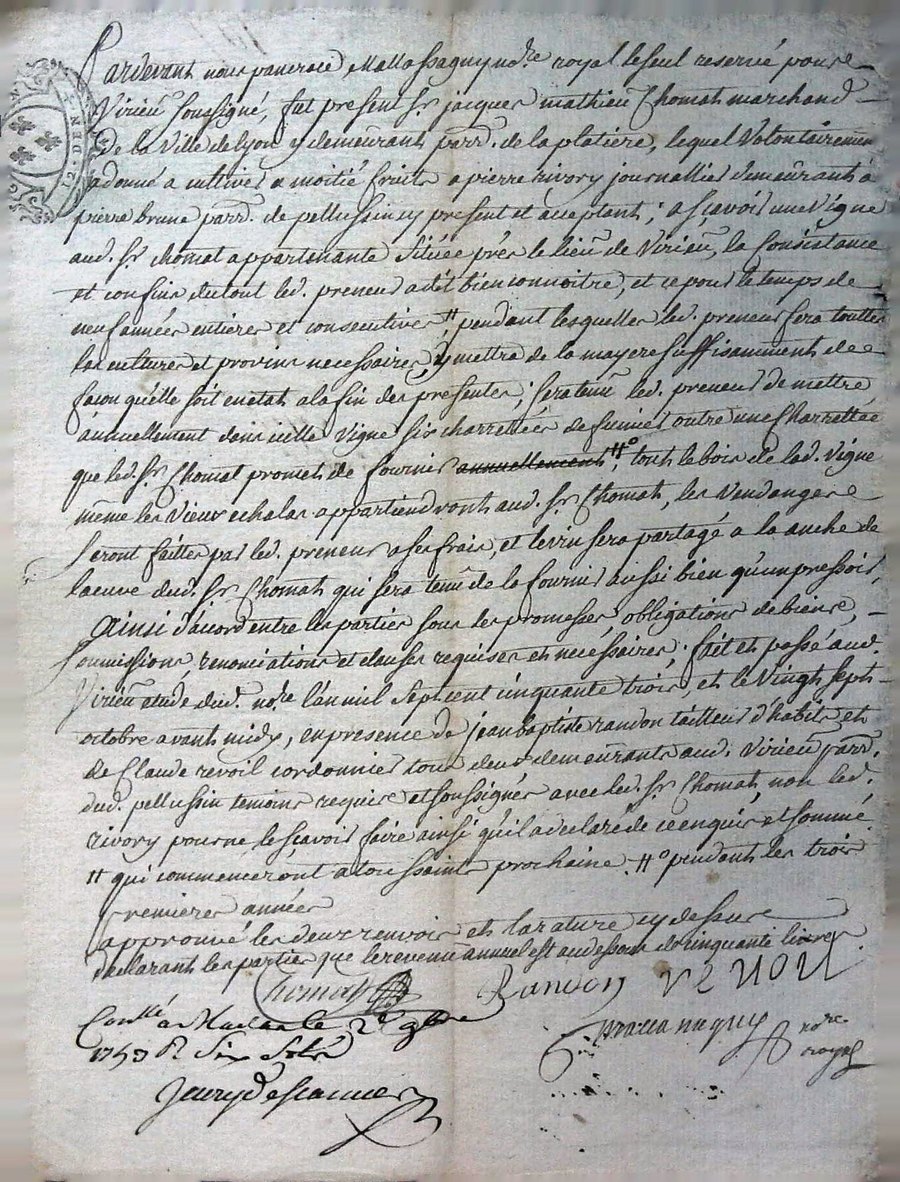 Pardevant nous pancrace Mallassagny no.re royal le seul reservé pour
Virieu soussigné, fut present Sr. jacques mathieu Chomat marchand
de la Ville de lyon y demeurant parr. de la platiere, lequel Volontairement
a donné a cultiver a moitié fruits a pierre rivory journallier demeurant a
pierre brune parr. de pellussin cy present et acceptant; a scavoir une Vigne
aud. Sr. chomat appartenante Située prés le lieu de Virieu, la Consistance
et confins du tout led. preneur a dit bien connoitre, et ce pour le temps de
neuf années entieres et consecutives # pendant lesquelles led. preneur fera touttes
les cultures et provins necessaires, y mettre de la mayere suffisamment de
facon qu'elle soit en etat a la fin des presentes; sera tenu led. preneur de mettre
annuellement dans icelle Vigne six charrettées de fumier outre une Charrettée
que led. Sr. Chomat promet de fournir annuellement #°, tout le bois de lad. Vigne
même les Vieux echalas appartiendront aud. Sr. Chomat, les Vendanges
seront faittes par led. preneur a ses frais, et le vin sera partagé a la anche de
la cuve dud. Sr. Chomat qui sera tenu de la fournir aussi bien qu'un pressoir,
Ainsi d'acord entre les parties sous les promesses, obligations de biens,
soumissions, renonciations et clauses requises et nécessaires; fait et passé aud.
Virieu etude dud. no.re l'an mil sept cent cinquante trois, et le Vingt sept
octobre avant midy, en presence de jean baptiste randon tailleur d'habits et
de Claude revoil cordonnier tous deux demeurants aud. Virieu parr.
dud. pellussin temoins requis et soussignés avec led. Sr. Chomat, non led.
rivory pour ne le scavoir faire ainsi qu'il a declaré de ce enquis et sommé
# qui commenceront a toussaints prochaine. #° pendant les trois
premieres années
approuvé les deux renvois et la rature cy dessus
declarant les parties que le revenu annuel est au dessous de cinquante livres
Chomat Randon revoil
Conllé a 2e 9bre
1753 R Six Sols
no.re
royal